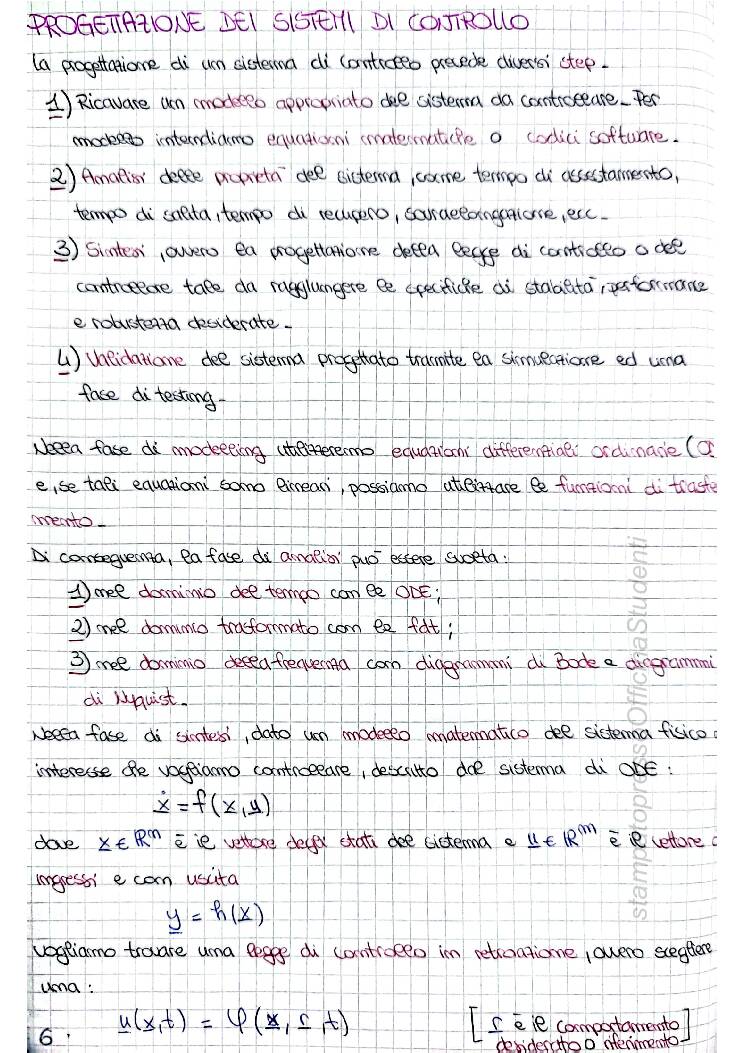 PROGETTAZIONE DEI SISTEMI DI CONTROLLO
La progettazione di un sistema di controllo precede diversi step.
1) Ricavare un modello appropriato del sistema da controllare. Per
modello intendiamo equazioni matematiche o codici software.
2) Analisi delle proprietà del sistema, come tempo di assestamento,
tempo di salita, tempo di recupero, sovraelongazione, ecc.
3) Sintesi, ovvero la progettazione della legge di controllo o del
controllore tale da raggiungere le specifiche di stabilità, performance
e robustezza desiderate.
4) Validazione del sistema progettato tramite la simulazione ed una
fase di testing.
Nella fase di modelling utilizzeremo equazioni differenziali ordinarie (O
e, se tali equazioni sono lineari, possiamo utilizzare le funzioni di trasfe
mento.
Di conseguenza, la fase di analisi può essere svolta:
1) nel dominio del tempo con le ODE;
2) nel dominio trasformato con le fdt;
3) nel dominio della frequenza con diagrammi di Bode e diagrammi
di Nyquist.
Nella fase di sintesi, dato un modello matematico del sistema fisico
interesse che vogliamo controllare, descritto dal sistema di ODE:
ẋ = f(x,u)
dove x ∈ ℝⁿ è il vettore degli stati del sistema e u ∈ ℝᵐ è il vettore
ingressi e con uscita
y = h(x)
vogliamo trovare una legge di controllo in retroazione, ovvero scegliere
una:
u(x,t) = φ(x, r, t) [r è il comportamento
desiderato o riferimento]
6.
stampatopressOfficinaStudenti